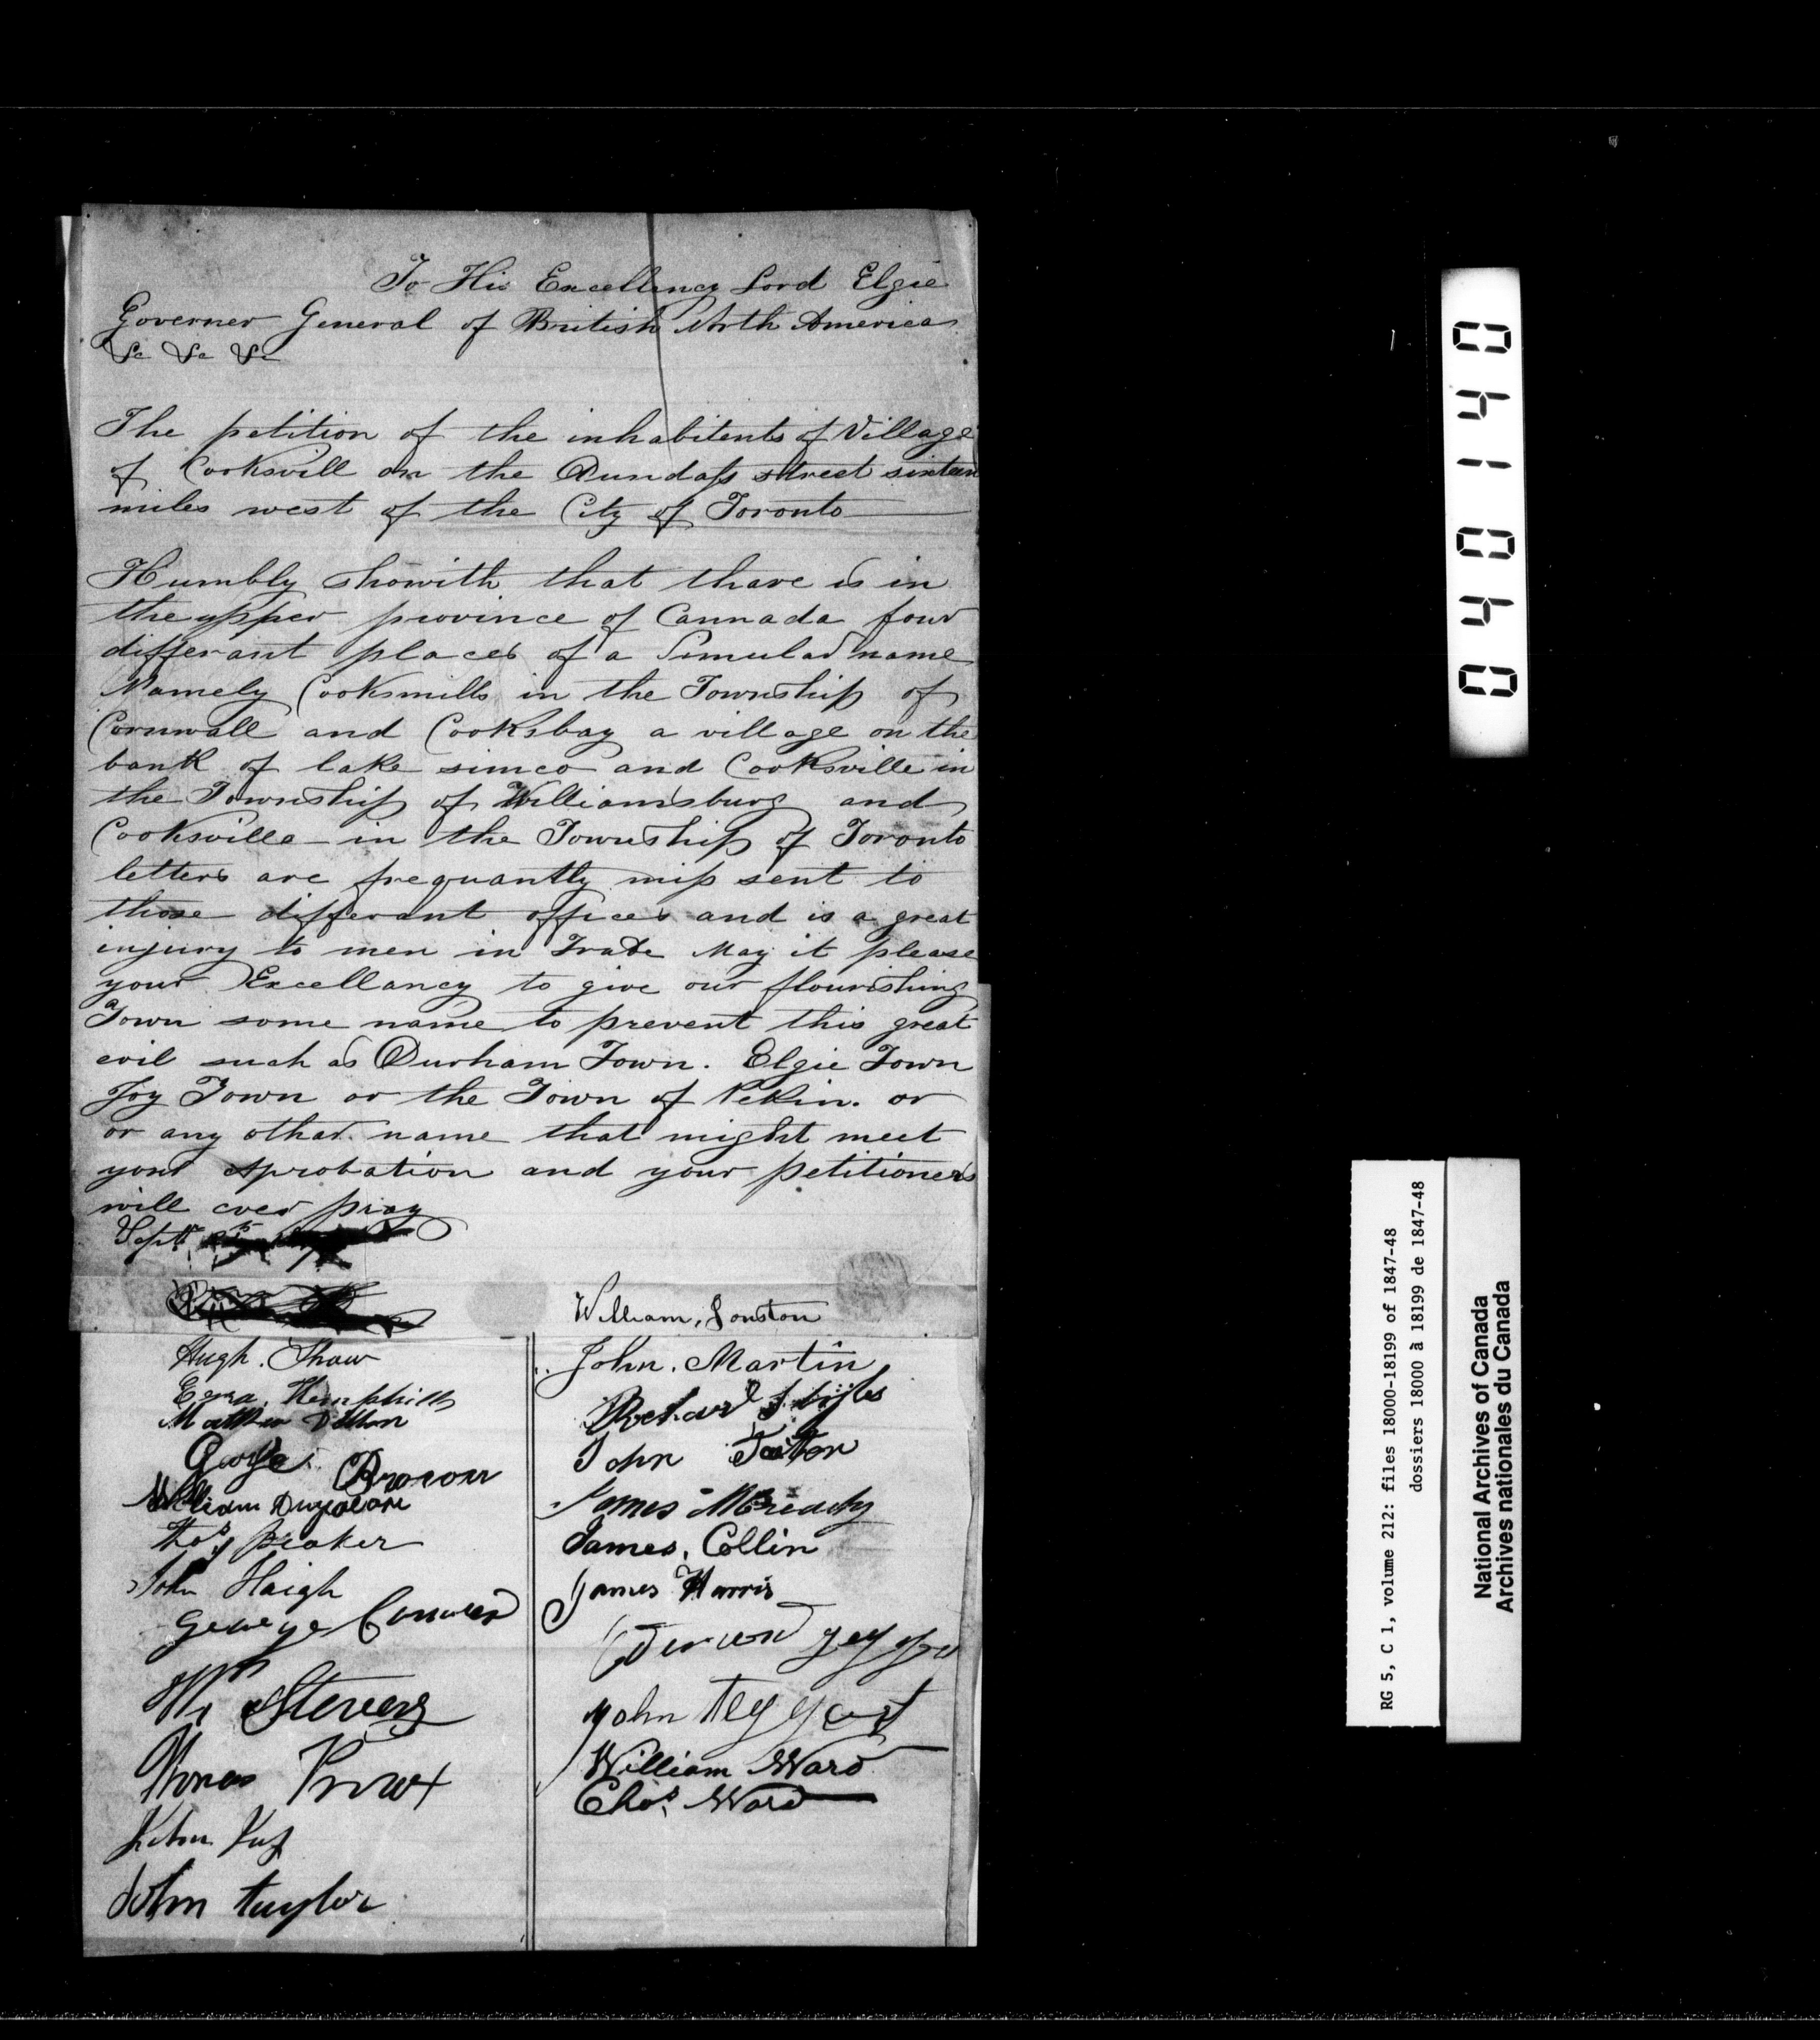 To His Excellency Lord Elgie
Governer General of British North America
&c &c &c
The petition of the inhabitents of Village
of Cooksvill on the Dundass street sixteen
miles west of the City of Toronto
Humbly showith that thare is in
the upper province of Cannada four
differant places of a Simular name
Namely Cooksmills in the Township of
Cornwall and Cooksbay a village on the
bank of lake simco and Cooksville in
the Township of Williamsburg and
Cooksville in the Township of Toronto
letters are frequantly miss sent to
those differant offices and is a great
injury to men in Trade May it please
your Excellancy to give our flourishing
Town some name to prevent this great
evil such as Durham Town. Elgie Town
Joy Town or the Town of Pekin. or
or any othar name that might meet
your aprobation and your petitioners
will ever pray
Sept
William, Jonston
Hugh. Shaw
Ezra. Hemphill
Matthew Dillon
George
William
Thos
John Haigh
George
Wm Stevens
Thomas
John
John Taylor
John. Martin
Richard
John Tatton
James McCready
James, Collin
James Harris
John
William Ward
Chas. Ward
04 01 40
RG 5, C 1, volume 212: files 18000-18199 of 1847-48
dossiers 18000 à 18199 de 1847-48
National Archives of Canada
Archives nationales du Canada